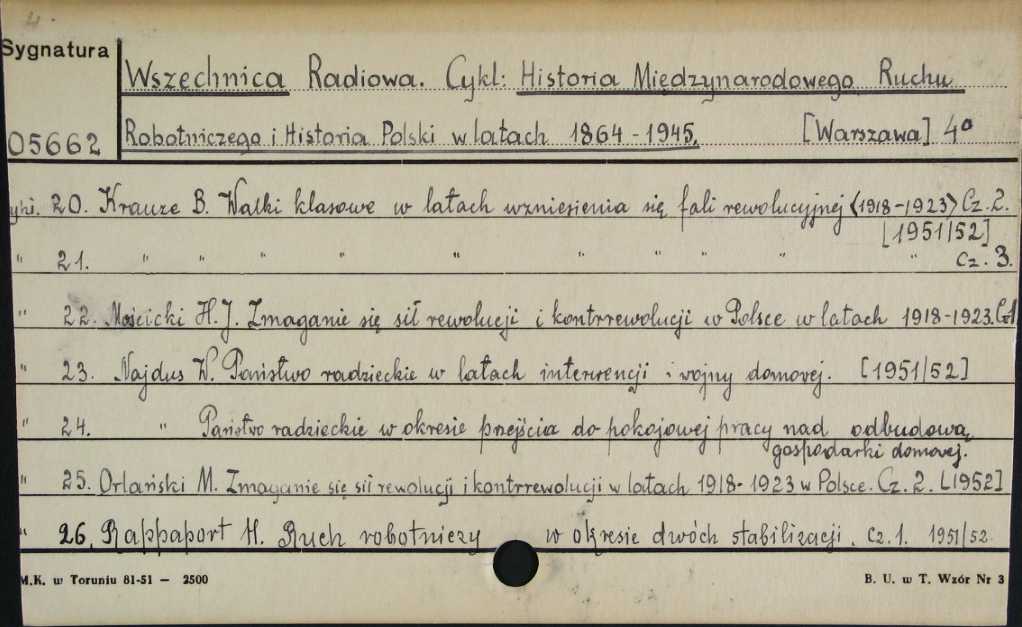 4.
Sygnatura
Wszechnica Radiowa. Cykl: Historia Międzynarodowego Ruchu
05662 Robotniczego i Historia Polski w latach 1864-1945. [Warszawa] 4°
20. Krauze B. Walki klasowe w latach wzniesienia się fali rewolucyjnej <1918-1923> Cz. 2.
[1951/52]
" 21. " " " " " " " " " " Cz. 3.
" 22. Mościcki H. J. Zmaganie się sił rewolucji i kontrrewolucji w Polsce w latach 1918-1923. Cz1
" 23. Najdus W. Państwo radzieckie w latach interwencji i wojny domowej. [1951/52]
" 24. " Państwo radzieckie w okresie przejścia do pokojowej pracy nad odbudową
gospodarki domowej.
" 25. Orlański M. Zmaganie się sił rewolucji i kontrrewolucji w latach 1918-1923 w Polsce. Cz. 2. [1952]
" 26. Rappaport H. Ruch robotniczy w okresie dwóch stabilizacji. Cz. 1. 1951/52
M.K. w Toruniu 81-51 — 2500 B. U. w T. Wzór Nr 3